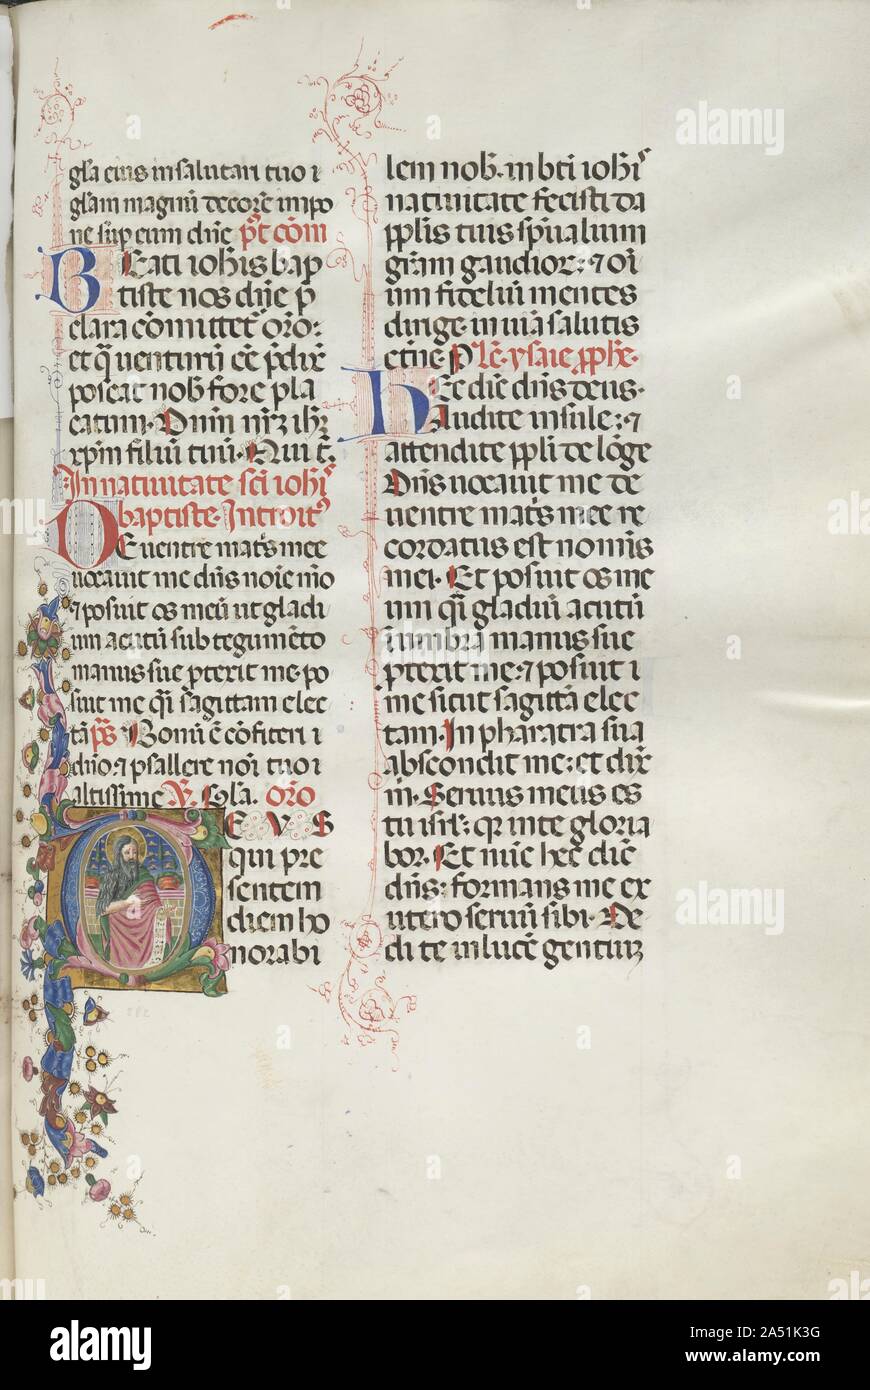 gl̃a eius in salutari tuo ⁊
gl̃am magnũ decorẽ impo
ne sup eum dñe p̃t cõm
BEati ioh̃is bap
tiste nos dñe p̃
clara cõmittet̃ orõ:
et q̃ uenturũ eẽ p̃dix̃
poscat nob̃ fore pla
catum. Dñm nr̃ʒ ih̃ʒ
xp̃m filiũ tuũ. Qui t̃.
In natiuitate sc̃i ioh̃is
baptiste. Introitꝰ
DE uentre mat̃s mee
uocauit me dñs noĩe mõ
⁊ posuit os meũ ut gladi
um acutũ sub tegumẽto
manus sue p̃texit me. po
suit me q̃i sagittam elec
tã p̃s Bonũ ẽ cõfiteri ⁊
dñio. ⁊ psallere noĩ tuo ⁊
altissime ℣. gl̃a. orõ
DEVS
qui pre
sentem
diem ho
norabi
lem nob̃. in bt̃i ioh̃iꝰ
natiuitate fecisti da
pp̃lis tuis sp̃ualium
gr̃am gaudioꝝ: ⁊ oĩ
um fideliũ mentes
dirige in uiã salutis
etñe. P̃ Lc̃. ysaie p̃phe.
HEc dic̃ dñs deus.
Audite insule: ⁊
attendite pp̃li de lõge
Dñs uocauit me de
uentre mat̃s mee re
cordatus est nomĩs
mei. Et posuit os me
um q̃i gladiũ acutũ
ĩ umbra manus sue
p̃texit me: ⁊ posuit ⁊
me sicut sagittã elec
tam. In pharatra sua
abscondit me: et dix̃
m̃. Seruus meus es
tu isrl̃: qr̃ in te gloria
bor. Et nũc hec dic̃
dñs: formans me ex
utero seruũ sibi. De
di te in lucẽ gentiuʒ
alamy
alamy
alamy
alamy
alamy
Image ID: 2A51K3G
www.alamy.com